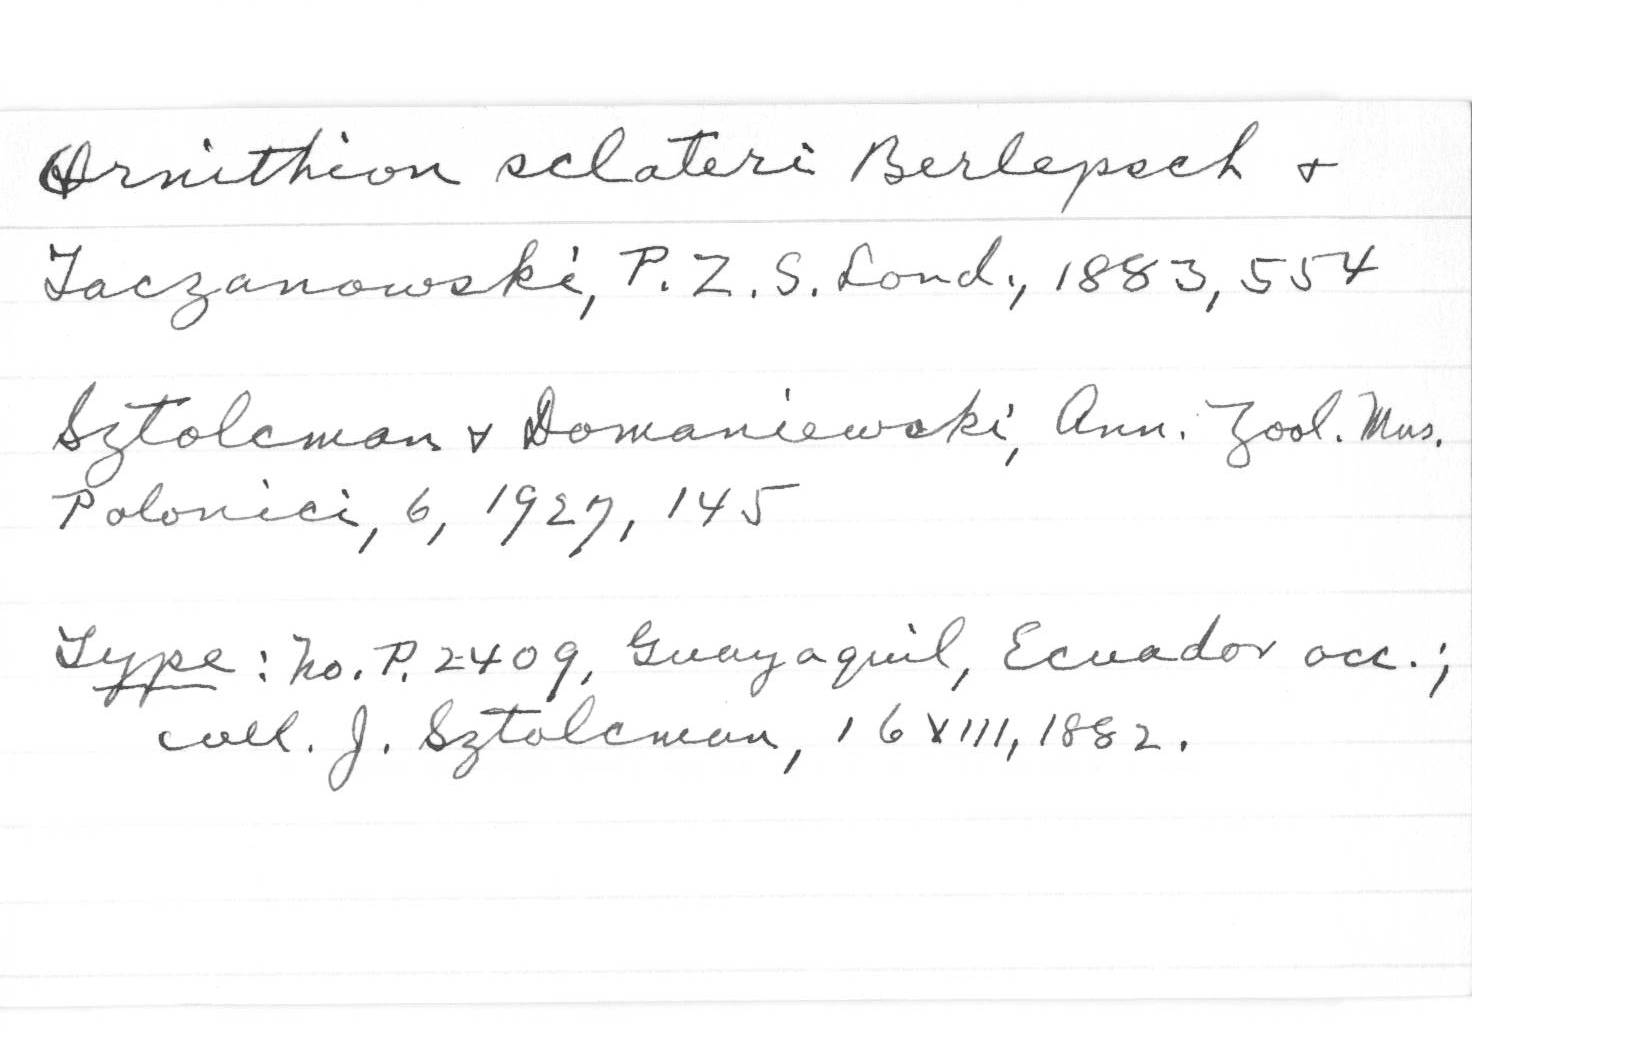 Ornithion sclateri Berlepsch &
Taczanowski, P. Z. S. Lond., 1883, 554
Sztolcman & Domaniewski, Ann. Zool. Mus.
Polonici, 6, 1927, 145
Type: No. P. 2409, Guayaquil, Ecuador occ.;
coll. J. Sztolcman, 16 VIII, 1882.